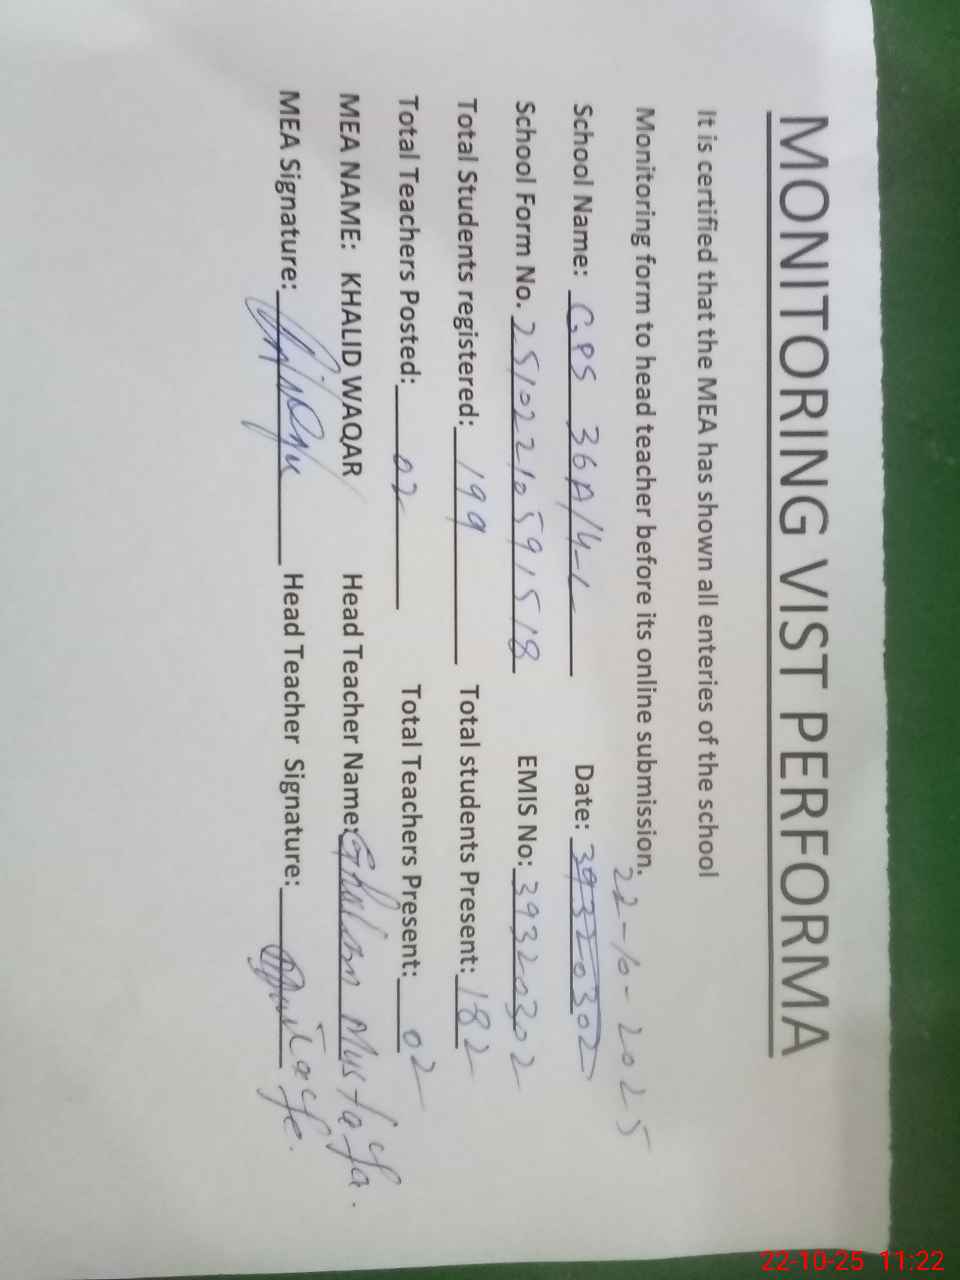 MONITORING VIST PERFORMA
It is certified that the MEA has shown all enteries of the school
Monitoring form to head teacher before its online submission.
22-10-2025
School Name: GPS 36A/4-L Date: 39320302
School Form No. 25102210591518 EMIS No: 39320302
Total Students registered: 199 Total students Present: 182
Total Teachers Posted: 02 Total Teachers Present: 02
MEA NAME: KHALID WAQAR Head Teacher Name: Ghulam Mustafa.
MEA Signature: Head Teacher Signature:
22-10-25 11:22